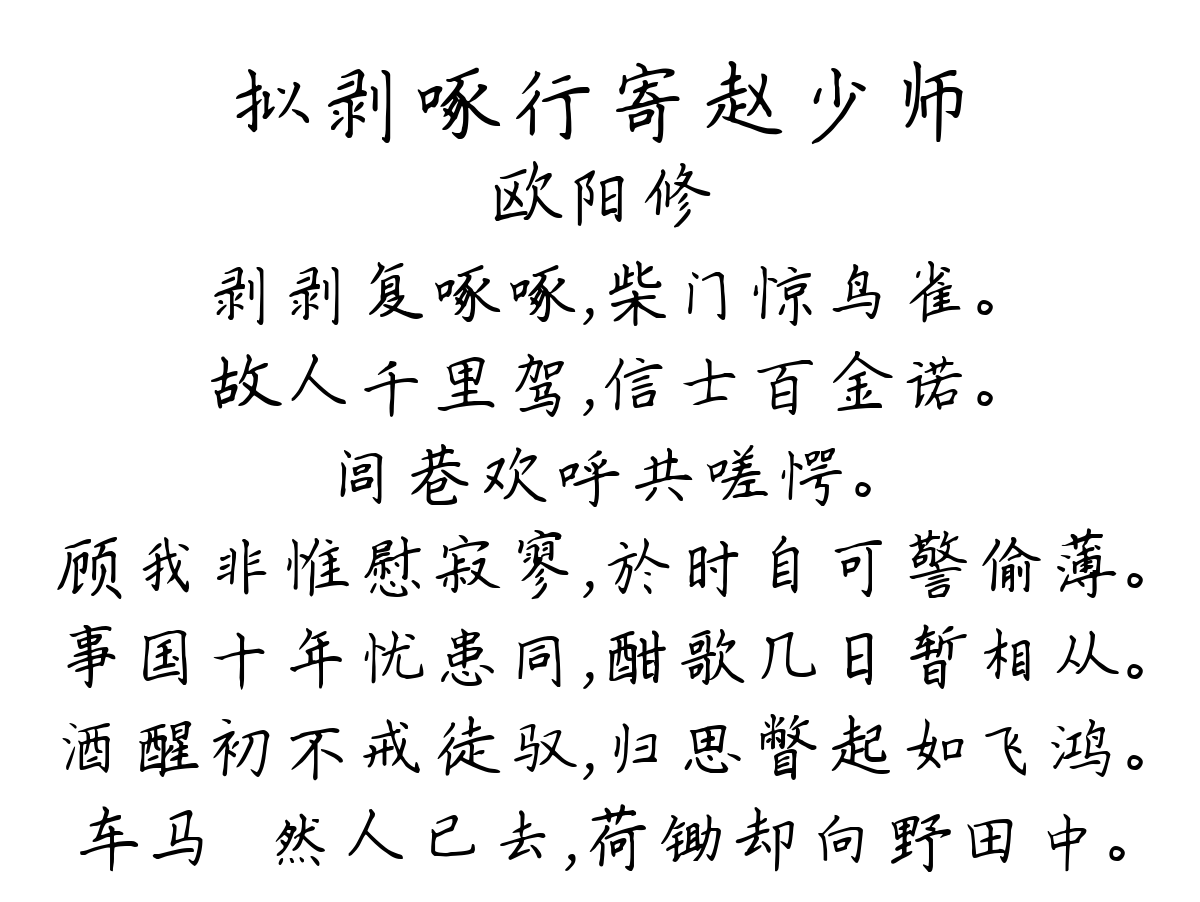 拟剥啄行寄赵少师
欧阳修
剥剥复啄啄,柴门惊鸟雀。
故人千里驾,信士百金诺。
闾巷欢呼共嗟愕。
顾我非惟慰寂寥,於时自可警偷薄。
事国十年忧患同,酣歌几日暂相从。
酒醒初不戒徒驭,归思瞥起如飞鸿。
车马 然人已去,荷锄却向野田中。